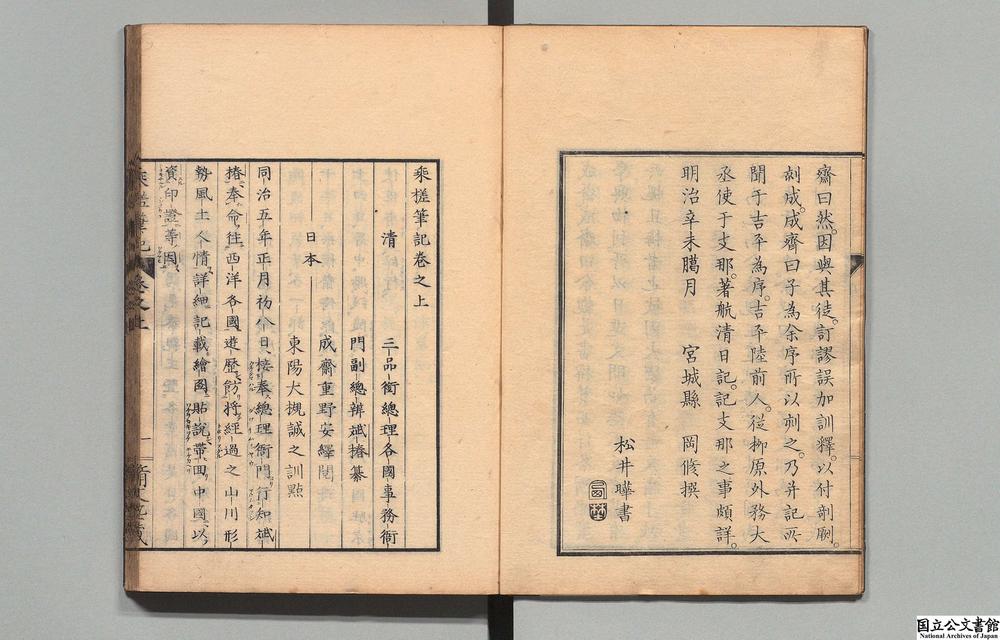 齋曰然。因與其徒。訂謬誤加訓釋。以付剞劂。
刻成。成齊曰子為余序所以刻之。乃并記所
聞于吉平為序。吉平陸前人。從柳原外務大
丞使于支那。著航清日記。記支那之事頗詳。
明治辛未臈月　宮城縣　岡修撰
松井曄書
乘槎筆記卷之上
清　三品銜總理各國事務衙
門副總辨斌椿纂
日本　成齋重野安繹閱
東陽大槻誠之訓點
同治五年正月初八日、接奉總理衙門行知、斌
椿奉命往西洋各國遊歷、飭將經過之山川形
勢風土人情、詳細記載、繪圖貼說、帶回中國、以
資印證等因、
乘槎筆記
卷之上
一
國立公文書館
National Archives of Japan